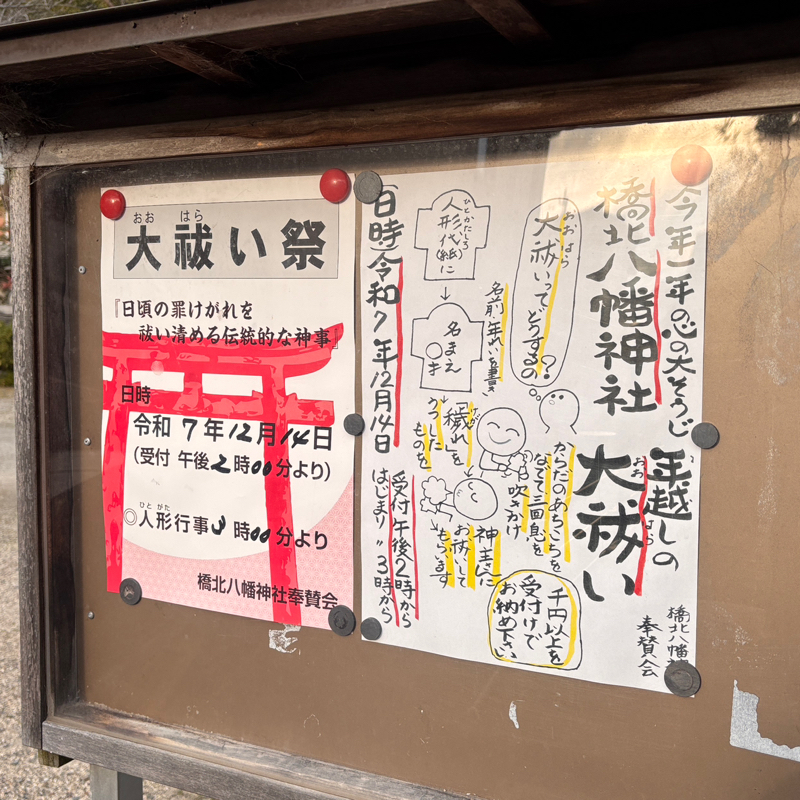 おお はら
大祓い祭
『日頃の罪けがれを
祓い清める伝統的な神事』
日時
令和 7年12月14日
(受付 午後2時00分より)
ひと がた
◎人形行事3時00分より
橋北八幡神社奉賛会
今年一年の心の大そうじ
橋北八幡神社
年越しの
おお はら
大祓い
橋北八幡神
奉賛会
おおはら
大祓いってどうするの?
ひとかたしろ
人形代(紙)に
↓
名まえ
○才
名前、年れいを書き
けが
「穢れ」を
うつした
ものを
からだのあちこちを
なでて三回息を
吹きかけ
神主さんに
お祓いて
もらいます
千円以上を
受付けで
お納め下さい
日時令和7年12月14日
受付 午後2時から
はじまり 〃 3時から